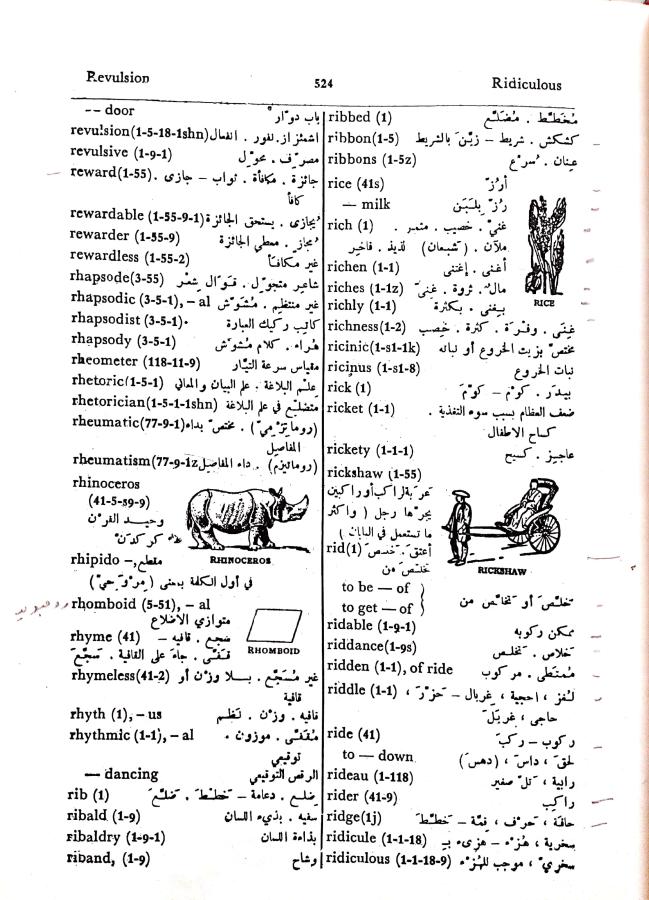 Revulsion 524 Ridiculous
-- door باب دوّار
revulsion(1-5-18-1shn) اشمئزاز. نفور. انفعال
revulsive (1-9-1) مصرّف. محوّل
reward(1-55). جائزة. مكافأة. ثواب – جازى.
كافأ
rewardable (1-55-9-1) يُجازى. يستحق الجائزة
rewarder (1-55-9) مُجاز. معطي الجائزة
rewardless (1-55-2) غير مكافأ
rhapsode(3-55) شاعر متجوّل. قوّال شِعْر
rhapsodic (3-5-1), – al غير منتظم. مشوّش
rhapsodist (3-5-1) كاتب ركيك العبارة
rhapsody (3-5-1) هراء. كلام مشوّش
rheometer (118-11-9) مقياس سرعة التيّار
rhetoric(1-5-1) علم البلاغة. علم البيان والمعاني
rhetorician(1-5-1-1shn) متضلّع في علم البلاغة
rheumatic(77-9-1) (روماتِزْميّ). مختصّ بداء
المفاصل
rheumatism(77-9-1z (روماتيزم). داء المفاصل
rhinoceros
(41-5-s9-9)
وحيد القرن
كركدن
RHINOCEROS
rhipido –,
في أول الكلمة بمعنى (مِرْوَحيّ)
rhomboid (5-51), – al
متوازي الاضلاع
RHOMBOID
rhyme (41) سجع. قافيه –
قفّى. جاء على القافية. سجّع
rhymeless(41-2) غير مُسَجّع. بلا وزن أو
قافية
rhyth (1), – us قافيه. وزن. نظم
rhythmic (1-1), – al مُقَفّى. موزون.
توقيعي
— dancing الرقص التوقيعي
rib (1) ضلع. دعامة – خطّط. ضلّع
ribald (1-9) سفيه. بذيء اللسان
ribaldry (1-9-1) بذاءة اللسان
riband, (1-9) وشاح
ribbed (1) مُخَطّط. مُضَلّع
ribbon(1-5) كشكش. شريط – زيّن بالشريط
ribbons (1-5z) عِنان. سرع
rice (41s) أرُزّ
— milk رُزّ بلَبَن
RICE
rich (1) غنيّ. خصيب. مثمر.
ملآن. (شبعان) لذيذ. فاخِر
richen (1-1) أغنى. إغتنى
riches (1-1z) مال. ثروة. غنىً
richly (1-1) بغنى. بكثرة
richness(1-2) غِنى. وفْرَة. كثرة. خصب
ricinic(1-s1-1k) مختصّ بزيت الخروع أو نباته
ricinus (1-s1-8) نبات الخروع
rick (1) بيدَر. كوْم – كوّمَ
ricket (1-1) ضعف العظام بسبب سوء التغذية.
كساح الاطفال
rickety (1-1-1) عاجِز. كسيح
rickshaw (1-55)
عربة لراكب أو راكبين
يجرّها رجل (واكثر
ما تستعمل في اليابان)
RICKSHAW
rid(1) أعتق. خلّص
خلّص من
to be — of
to get — of تخلّص أو تخلّص من
ridable (1-9-1) ممكن ركوبه
riddance(1-9s) خلاص. تخلّص
ridden (1-1), of ride مُمتطى. مركوب
riddle (1-1) لُغز، احجية، غربال – حَزَرَ،
حاجى، غربَل
ride (41) ركوب – ركِبَ
to — down لحق، داس، (دهس)
rideau (1-118) رابية، تلّ صغير
rider (41-9) راكِب
ridge(1j) حافة، حَرْف، قِمّة – خطّط
ridicule (1-1-18) سخرية، هُزْء – هزىء بـ
ridiculous (1-1-18-9) سخريّ، موجب للهزْء